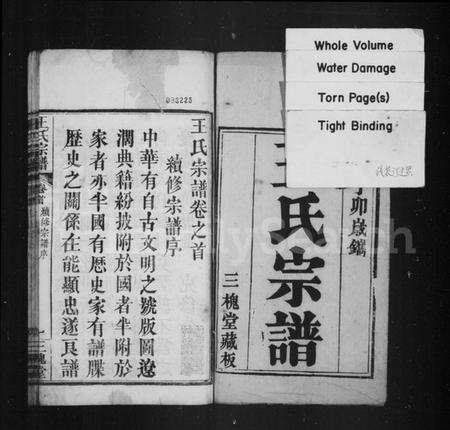 Whole Volume
Water Damage
Torn Page(s)
Tight Binding
丁卯歲鐫
王氏宗譜
三槐堂藏板
092225
王氏宗譜卷之首
續修宗譜序
中華有自古文明之號版圖遼
濶典籍紛披附於國者半附於
家者亦半國有歷史家有譜牒
歷史之關係在能顯忠遂良譜
王氏宗譜
卷首
續修宗譜序
一
三槐堂